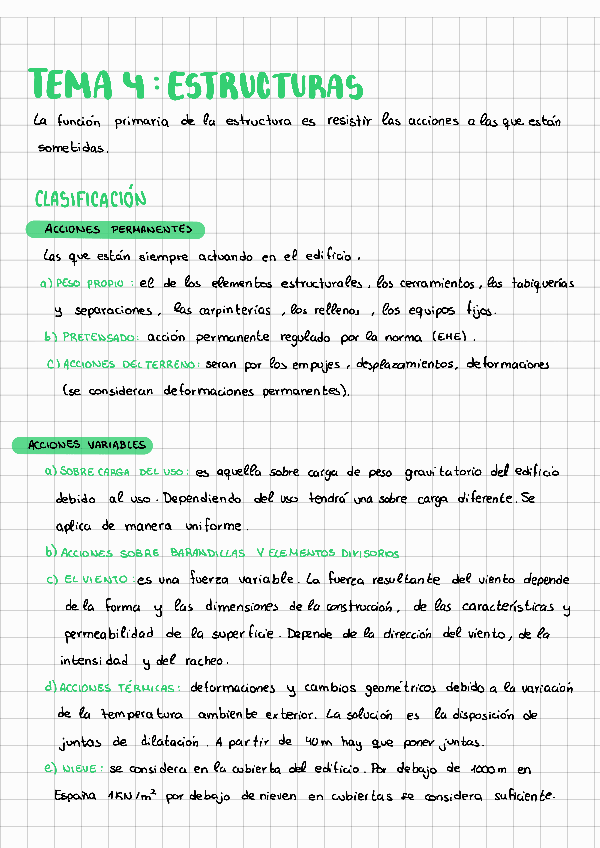 TEMA 4 : ESTRUCTURAS
La función primaria de la estructura es resistir las acciones a las que están
sometidas.
CLASIFICACIÓN
ACCIONES PERMANENTES
Las que están siempre actuando en el edificio.
a) PESO PROPIO : el de los elementos estructurales, los cerramientos, las tabiquerías
y separaciones, las carpinterías, los rellenos, los equipos fijos.
b) PRETENSADO: acción permanente regulado por la norma (EHE).
c) ACCIONES DEL TERRENO: seran por los empujes, desplazamientos, deformaciones
(se consideran deformaciones permanentes).
ACCIONES VARIABLES
a) SOBRE CARGA DEL USO: es aquella sobre carga de peso gravitatorio del edificio
debido al uso. Dependiendo del uso tendrá una sobre carga diferente. Se
aplica de manera uniforme.
b) ACCIONES SOBRE BARANDILLAS Y ELEMENTOS DIVISORIOS
c) EL VIENTO : es una fuerza variable. La fuerza resultante del viento depende
de la forma y las dimensiones de la construcción, de las características y
permeabilidad de la superficie. Depende de la dirección del viento, de la
intensidad y del racheo.
d) ACCIONES TÉRMICAS: deformaciones y cambios geométricos debido a la variación
de la temperatura ambiente exterior. La solución es la disposición de
juntas de dilatación. A partir de 40m hay que poner juntas.
e) NIEVE : se considera en la cubierta del edificio. Por debajo de 1000m en
España 1KN/m² por debajo de nieven en cubiertas se considera suficiente.